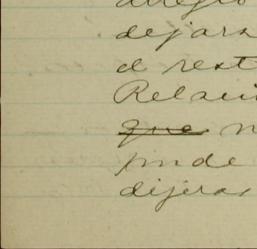 arreglo
dejara
el rest
Relaci
que n
pude
dijeras